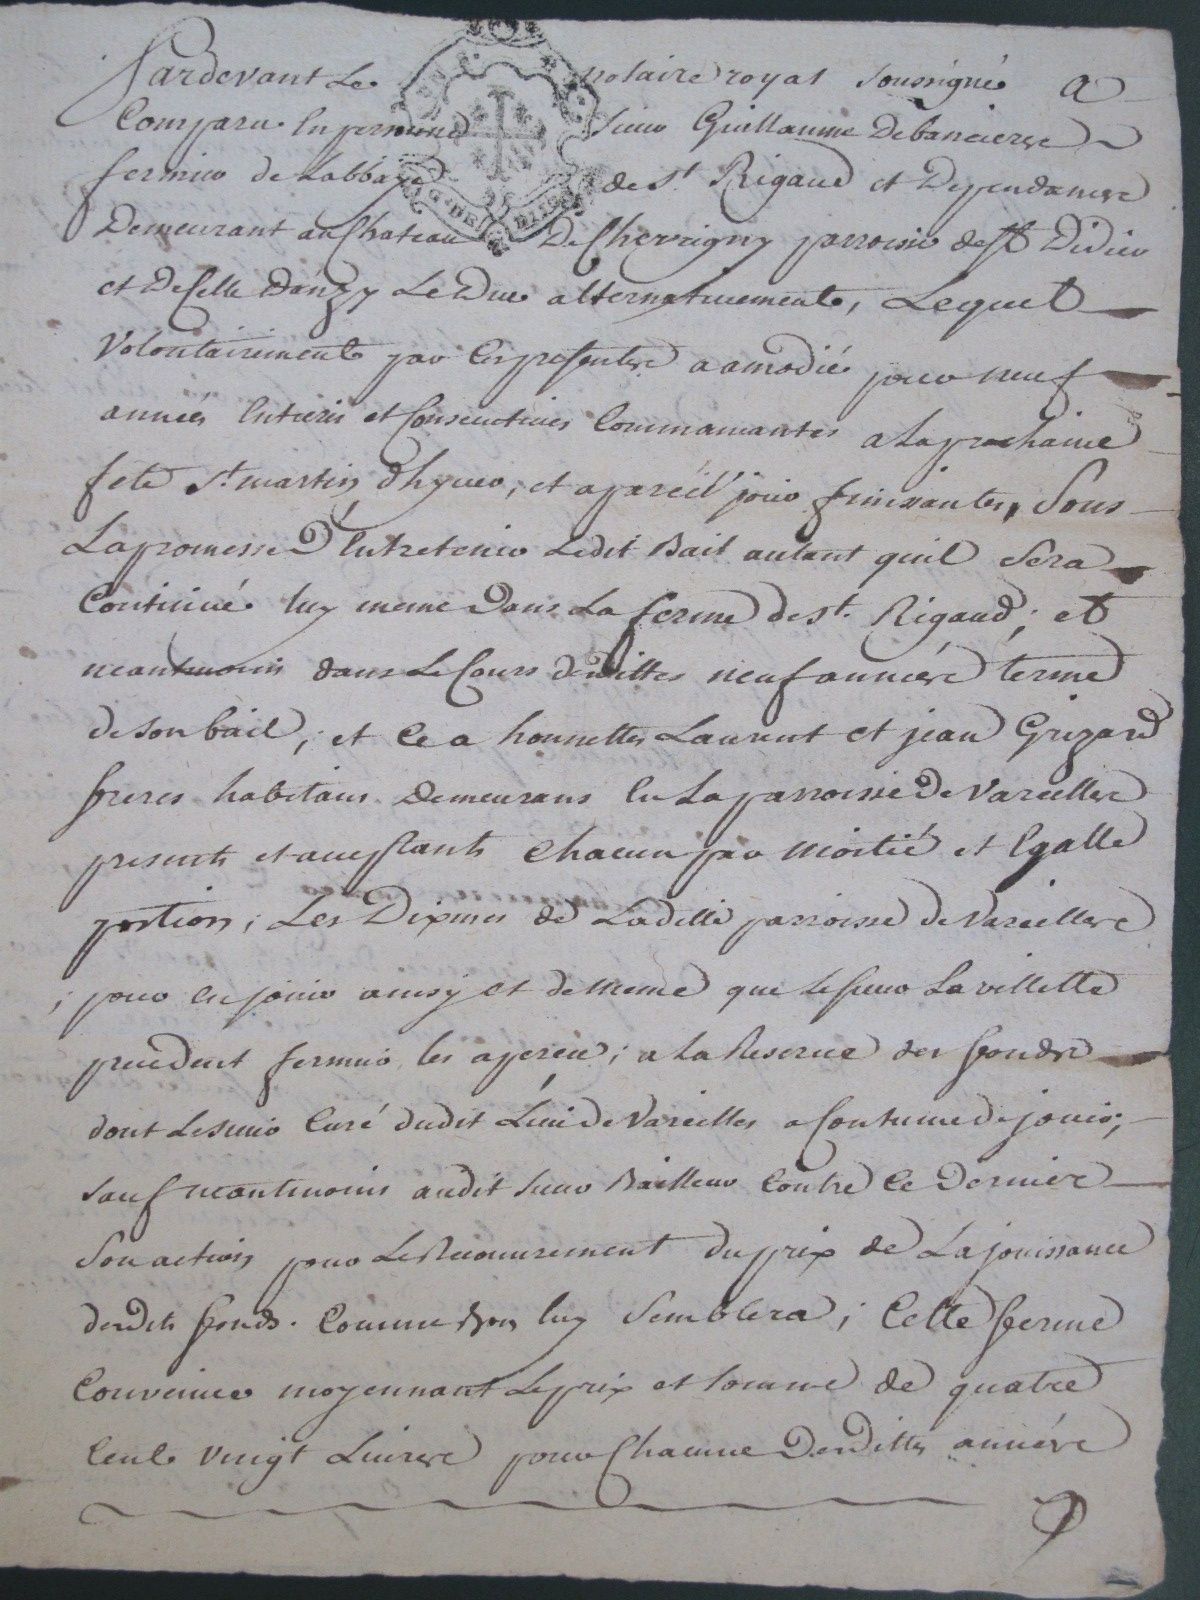 Pardevant Le notaire royal soussigné a
Comparu en personne sieur Guillaume Debancierre
fermier de Labbaye de St Rigaud et Dependances
Demeurant au Chateau De Chevrigny parroisse de St Didier
et De Celle Danzy Le Duc alternativement, Lequel
Volontairement par les presentes a amodié pour neuf
années Entieres et Consecutives Commancantes a La prochaine
fete St martin dhyver, et a pareil jour finissantes, Sous
La promesse D'Entretenir Ledit Bail autant quil sera
Continué luy meme Dans La ferme de St. Rigaud; et
neantmoins dans Le Cours desdittes neuf années terme
de son bail; et Ce a honnettes Laurent et jean Grizard
freres habitans Demeurans En La parroisse De Vareilles
presents et acceptants Chacun par moitié et Egalle
portion; Les Dixmes de Laditte parroisse de Vareilles
; pour en jouir ainsy et de meme que Le sieur Lavillette
precedent fermier les a perçu; a La Reserve des fonds
dont Le sieur Curé dudit Lieu de Vareilles a Coutume de jouir,
sauf neantmoins audit sieur Bailleur Contre Ce Dernier
Son action pour Le Recouvrement du prix de La jouissance
desdits fonds. Comme bon luy Semblera; Cette ferme
Convenue moyennant Le prix et somme de quatre
Cent vingt Livres pour Chacune Desdittes années
G. DE DIJON